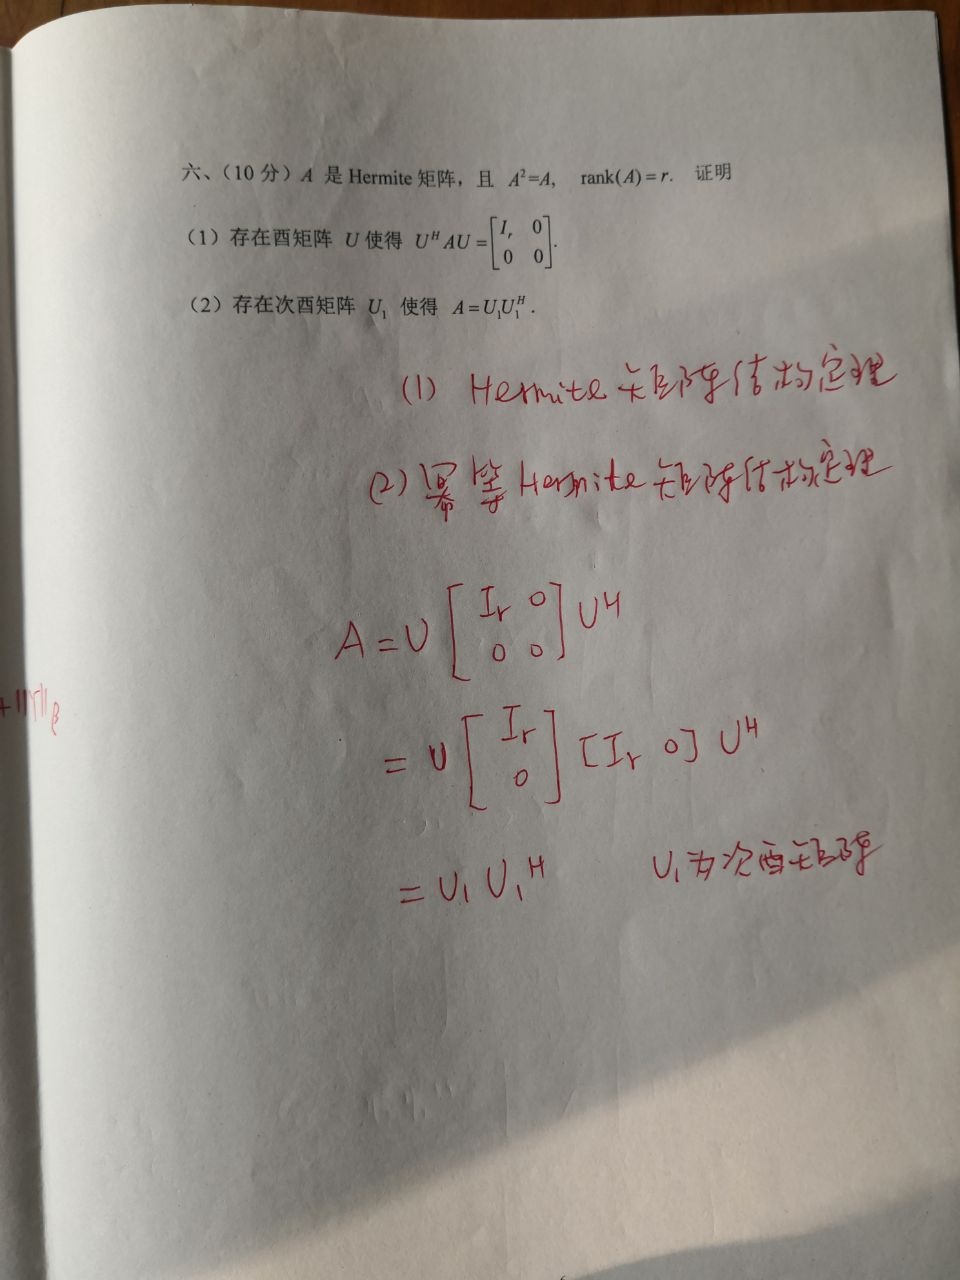 六、（10 分）A 是 Hermite 矩阵，且 A²=A, rank(A)=r. 证明
（1）存在酉矩阵 U 使得 U^H AU = [I_r 0; 0 0].
（2）存在次酉矩阵 U₁ 使得 A=U₁U₁^H.
(1) Hermite 矩阵结构定理
(2) 幂等 Hermite 矩阵结构定理
A = U [I_r 0; 0 0] U^H
+||Y||_β
= U [I_r; 0] [I_r 0] U^H
= U₁ U₁^H U₁为次酉矩阵